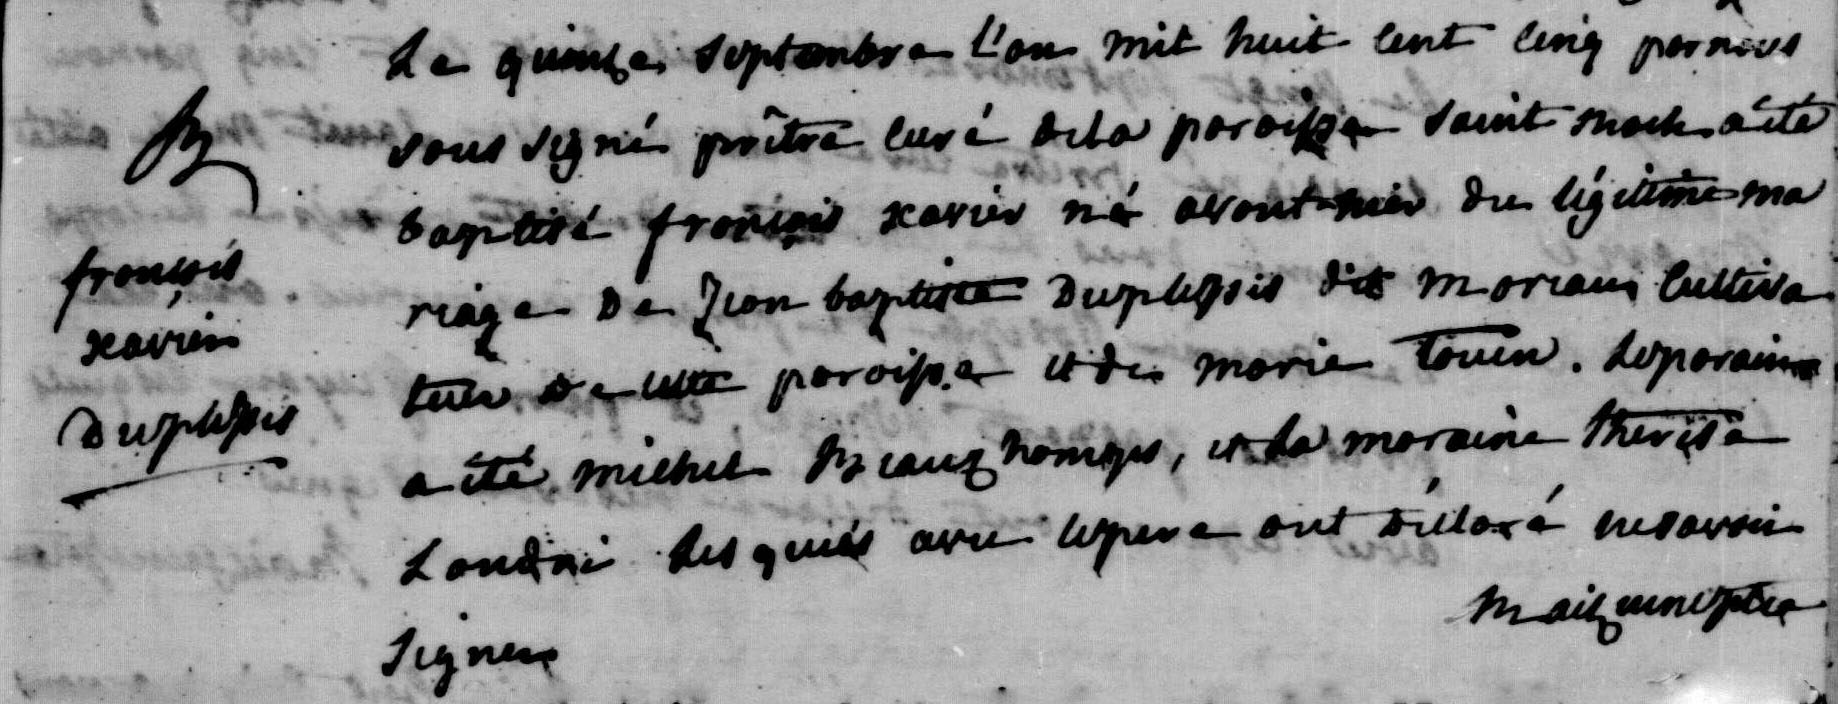 B
françois
xavier
Duplessis
Le quinze septembre l'an mil huit cent cinq par nous
sous signé prêtre curé de la paroisse saint Roch a été
baptisé françois xavier né avant hier du légitime ma
riage de Jean baptiste Duplessis dit Morian cultiva
teur de cette paroisse et de marie Touin. Le parain
a été michel Beauxhomps, et la maraine therese
Landri lesquels avec le pere ont déclaré ne savoir
signer